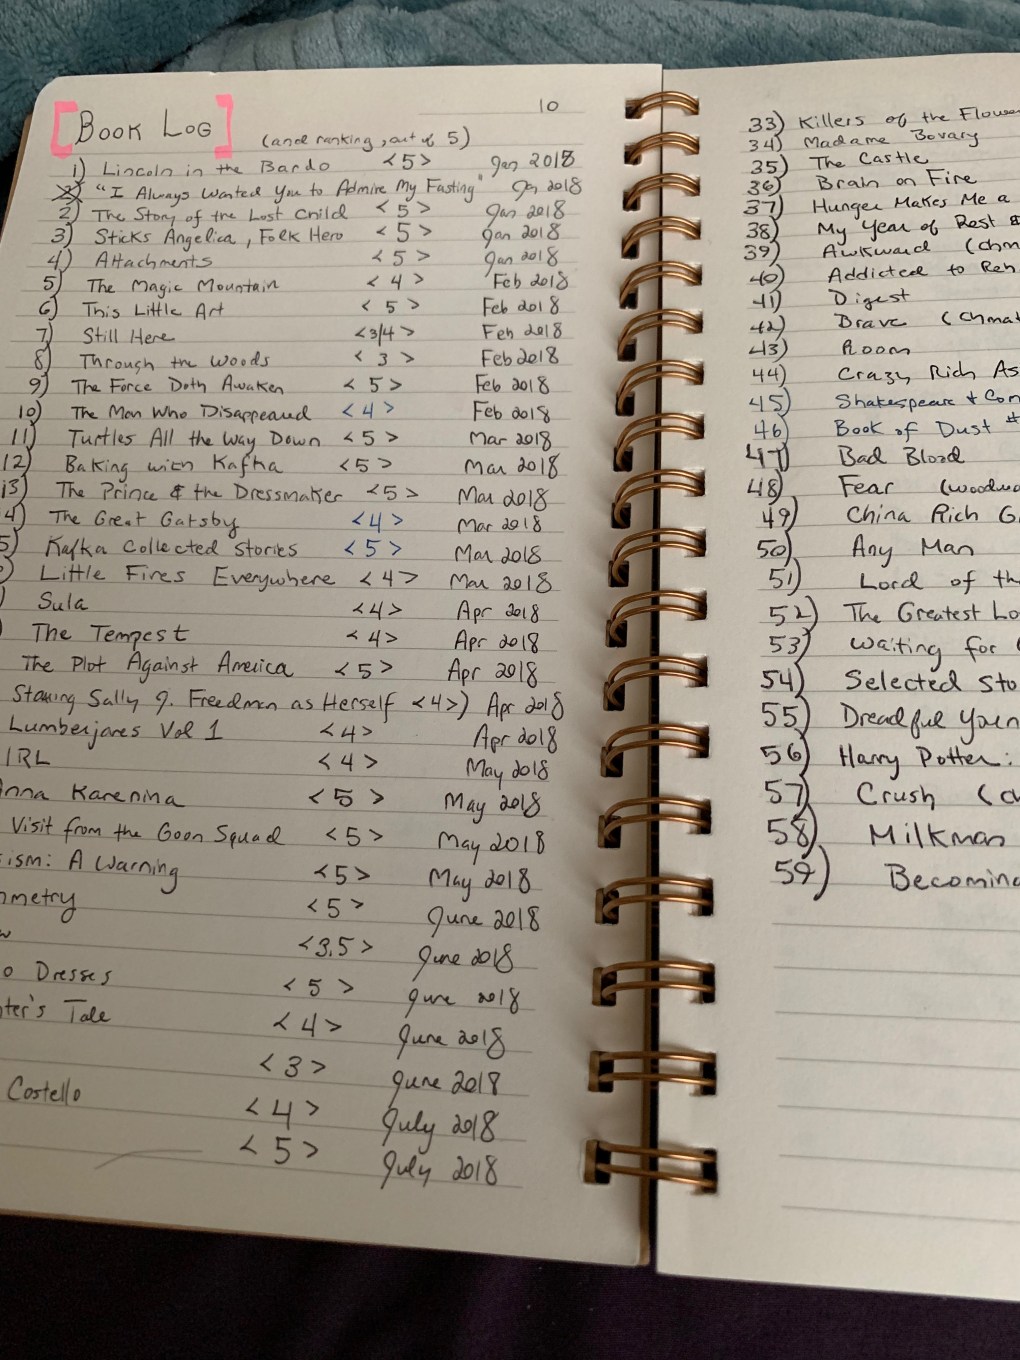 10
[Book Log] (and ranking, out of 5)
1) Lincoln in the Bardo <5> Jan 2018
2) "I Always Wanted You to Admire My Fasting" Jan 2018
2) The Story of the Lost Child <5> Jan 2018
3) Sticks Angelica, Folk Hero <5> Jan 2018
4) Attachments <5> Jan 2018
5) The Magic Mountain <4> Feb 2018
6) This Little Art <5> Feb 2018
7) Still Here <3/4> Feb 2018
8) Through the Woods <3> Feb 2018
9) The Force Doth Awaken <5> Feb 2018
10) The Man Who Disappeared <4> Feb 2018
11) Turtles All the Way Down <5> Mar 2018
12) Baking with Kafka <5> Mar 2018
13) The Prince & the Dressmaker <5> Mar 2018
4) The Great Gatsby <4> Mar 2018
5) Kafka Collected Stories <5> Mar 2018
) Little Fires Everywhere <4> Mar 2018
) Sula <4> Apr 2018
) The Tempest <4> Apr 2018
The Plot Against America <5> Apr 2018
Starring Sally J. Freedman as Herself <4>) Apr 2018
Lumberjanes Vol 1 <4> Apr 2018
IRL <4> May 2018
nna Karenina <5> May 2018
Visit from the Goon Squad <5> May 2018
ism: A Warning <5> May 2018
mmetry <5> June 2018
w <3.5> June 2018
o Dresses <5> June 2018
ter's Tale <4> June 2018
<3> June 2018
Costello <4> July 2018
<5> July 2018
33) Killers of the Flower
34) Madame Bovary
35) The Castle
36) Brain on Fire
37) Hunger Makes Me a
38) My Year of Rest &
39) Awkward (Chm
40) Addicted to Ren
41) Digest
42) Brave (Chmak
43) Room
44) Crazy Rich As
45) Shakespeare + Com
46) Book of Dust #
47) Bad Blood
48) Fear (Woodwa
49) China Rich G
50) Any Man
51) Lord of th
52) The Greatest Lo
53) Waiting for
54) Selected Sto
55) Dreadful Youn
56) Harry Potter:
57) Crush (Ch
58) Milkman
59) Becoming